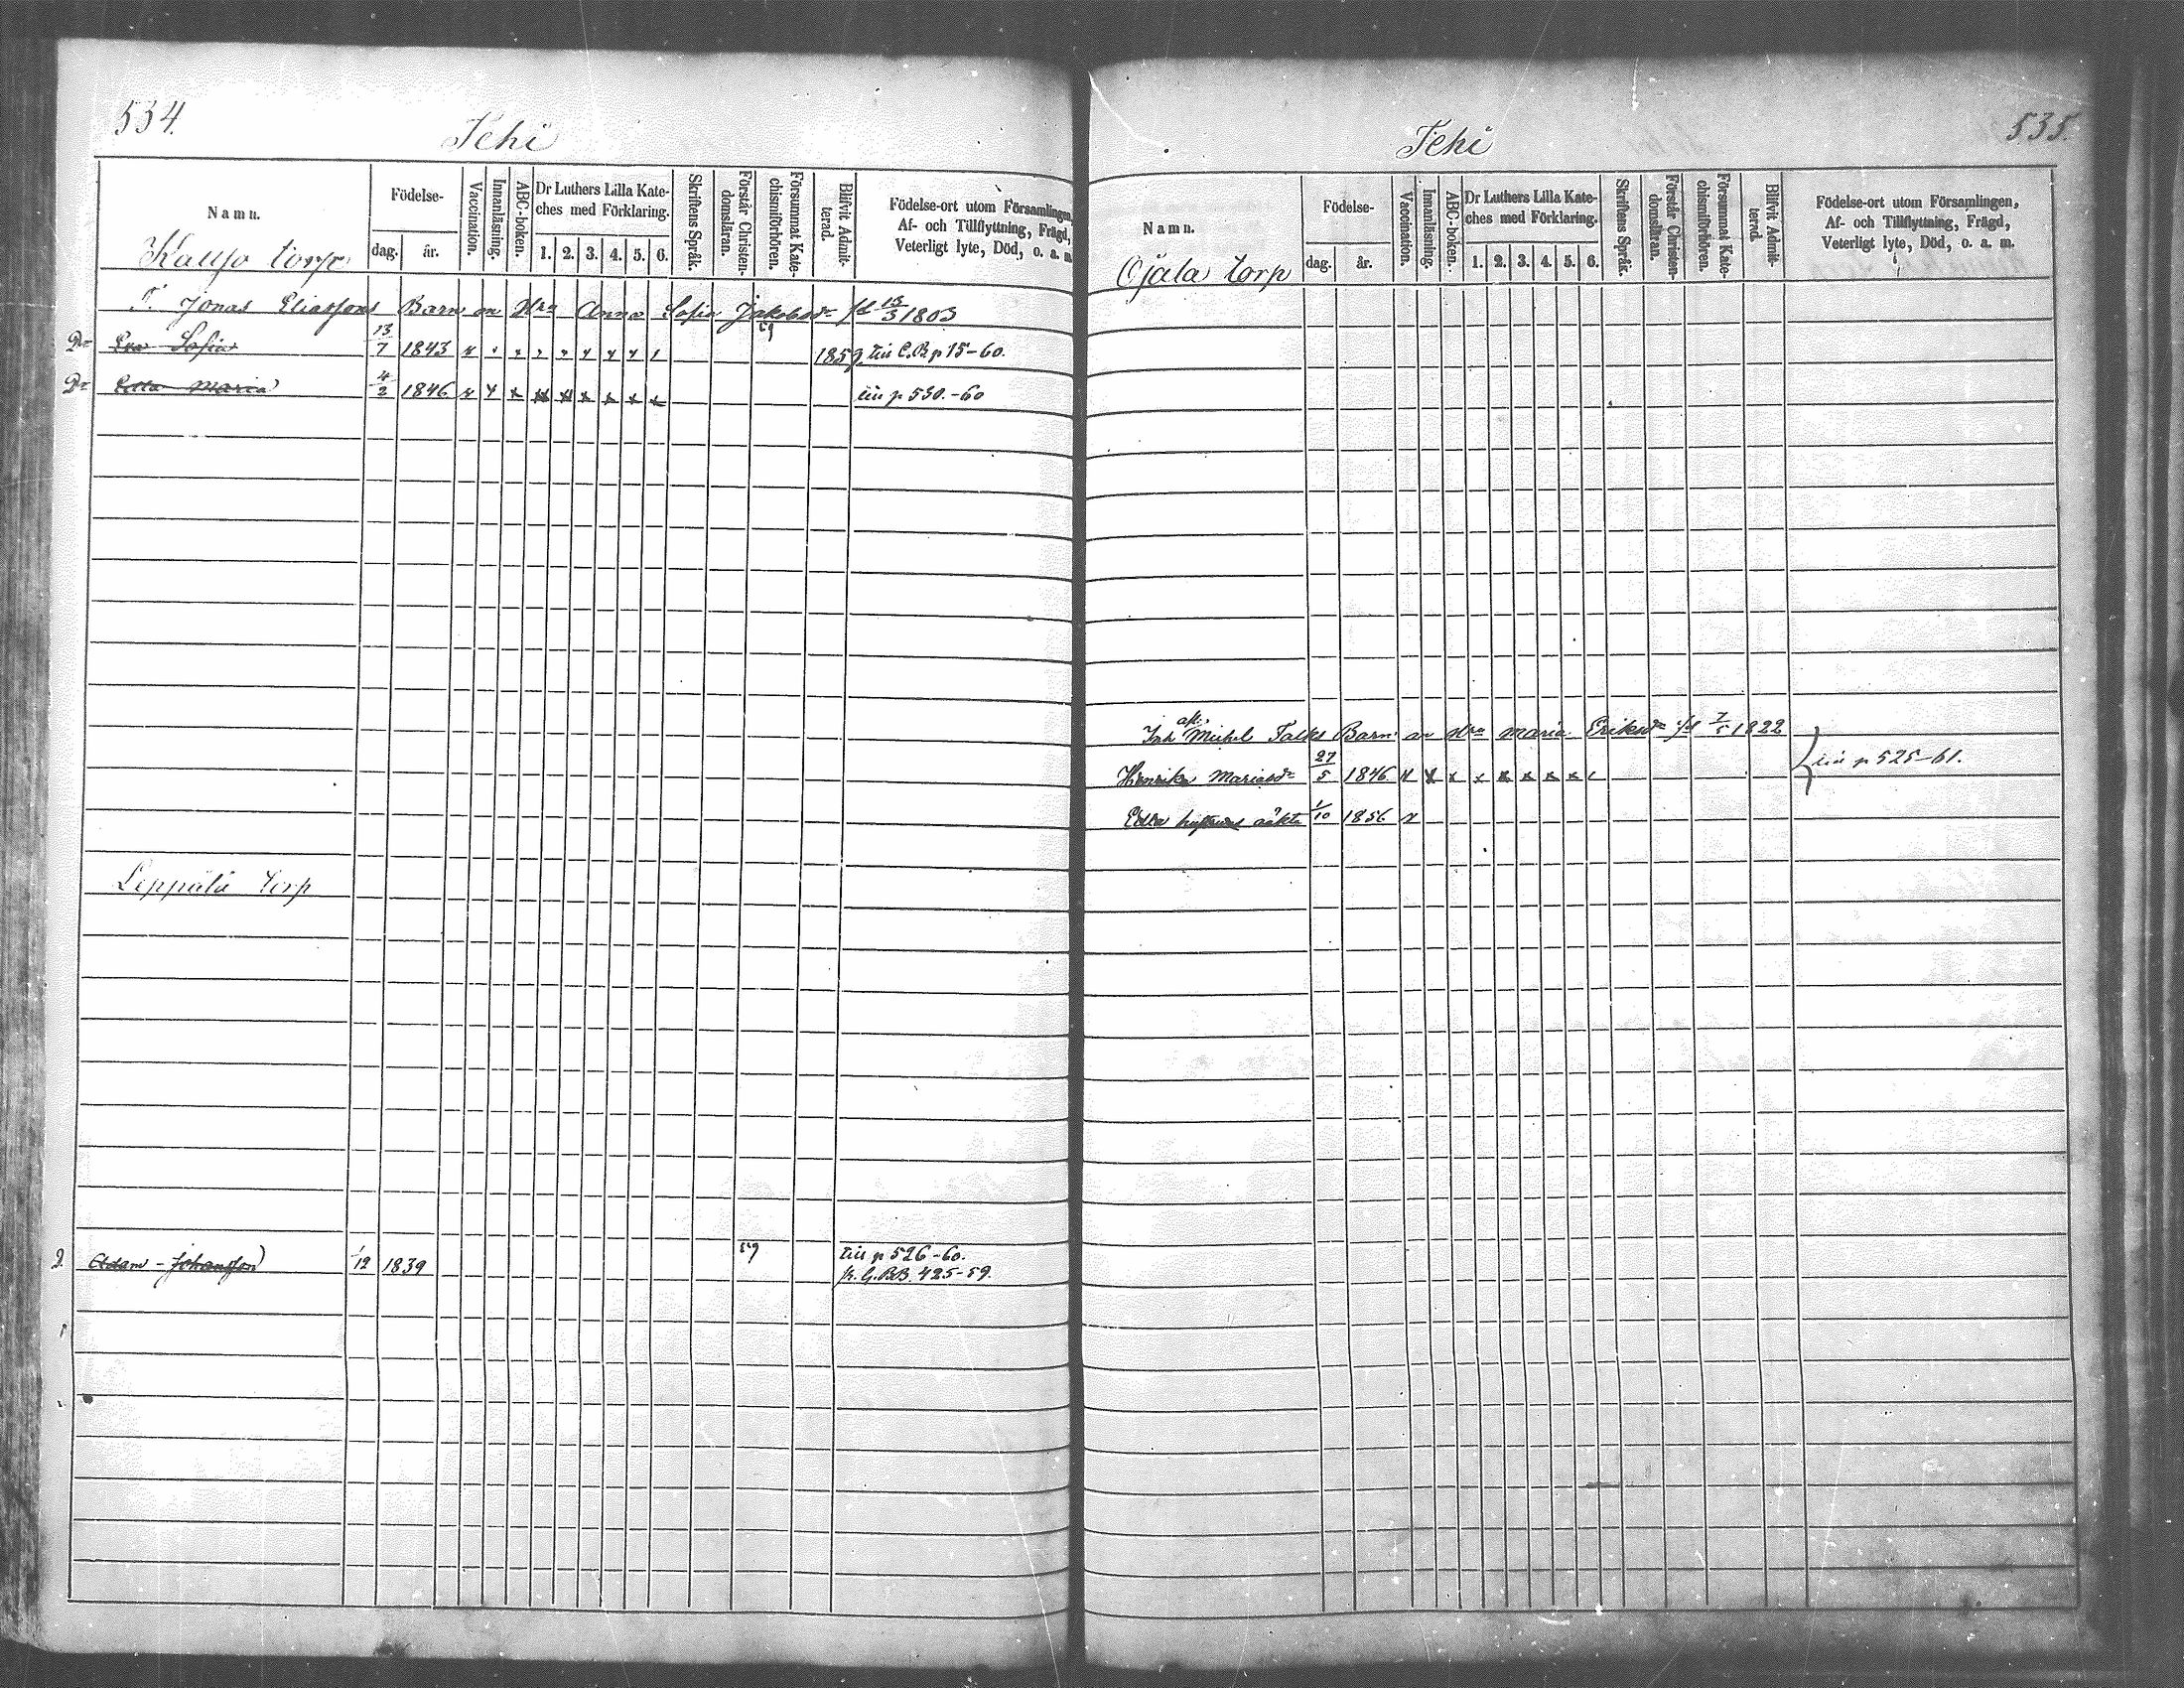 534.
Tehi
Namn.
Födelse-
dag.
år.
Vaccination.
Innanläsning.
ABC-boken.
Dr Luthers Lilla Kate-
ches med Förklaring.
1. 2. 3. 4. 5. 6.
Skriftens Språk.
Förstår Christen-
domsläran.
Försummat Kate-
chismiförhören.
Blifvit Admit-
terad.
Födelse-ort utom Församlingen,
Af- och Tillflyttning, Frägd,
Veterligt lyte, Död, o. a. m.
torp
T. Jonas Eliassons Barn en Hra Anna Sofia Jakobsdr fd 13/3 1803
Dr Eva Sofia 13/7 1843 59 1859 till C.B p 15-60.
Dr Edla Maria 4/2 1846 till p 530.-60
Leppälä torp
D. Adam Johansson 1/12 1839 59 till p 526-60.
fr. G.BB. 425-59.
535.
Tehi
Namn.
Födelse-
dag.
år.
Vaccination.
Innanläsning.
ABC-boken.
Dr Luthers Lilla Kate-
ches med Förklaring.
1. 2. 3. 4. 5. 6.
Skriftens Språk.
Förstår Christen-
domsläran.
Försummat Kate-
chismiförhören.
Blifvit Admit-
terad.
Födelse-ort utom Församlingen,
Af- och Tillflyttning, Frägd,
Veterligt lyte, Död, o. a. m.
Ojala torp
Inh afl. Michel Falks Barn av Hra Maria Eriksdr fd 7/5 1822
Henrika Mariasdr 27/5 1846 till p 525-61.
Edla äkta 1/10 1856